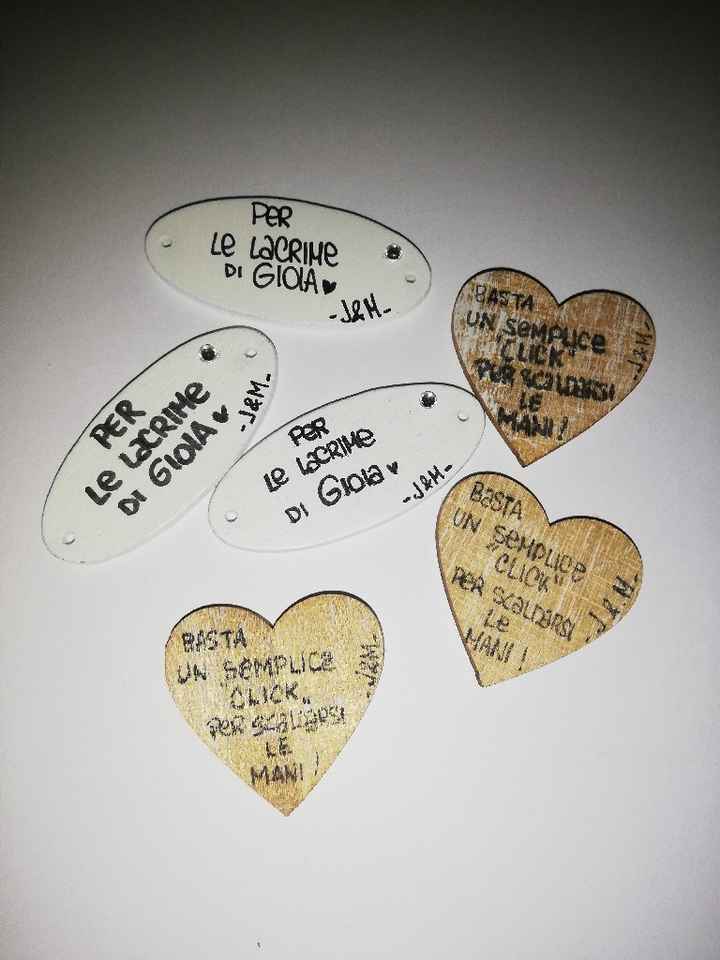 PER
Le LaCRIME
DI GIOIA
-J&M-
PER
Le LaCRIME
DI GIOIA
-J&M-
PeR
Le LaCRIME
DI GIOIa
-J&M-
BASTA
UN SeMPLICe
"CLICK"
PeR SCaLDaRSI
LE
MANI!
-J&M-
BaSTA
UN SeMPLICe
"CLICK"
PeR SCaLDaRSI
Le
MANI!
-J&M-
BASTA
UN SeMPLICe
CLICK"
PeR SCaLDaRSI
LE
MANI!
-J&M-